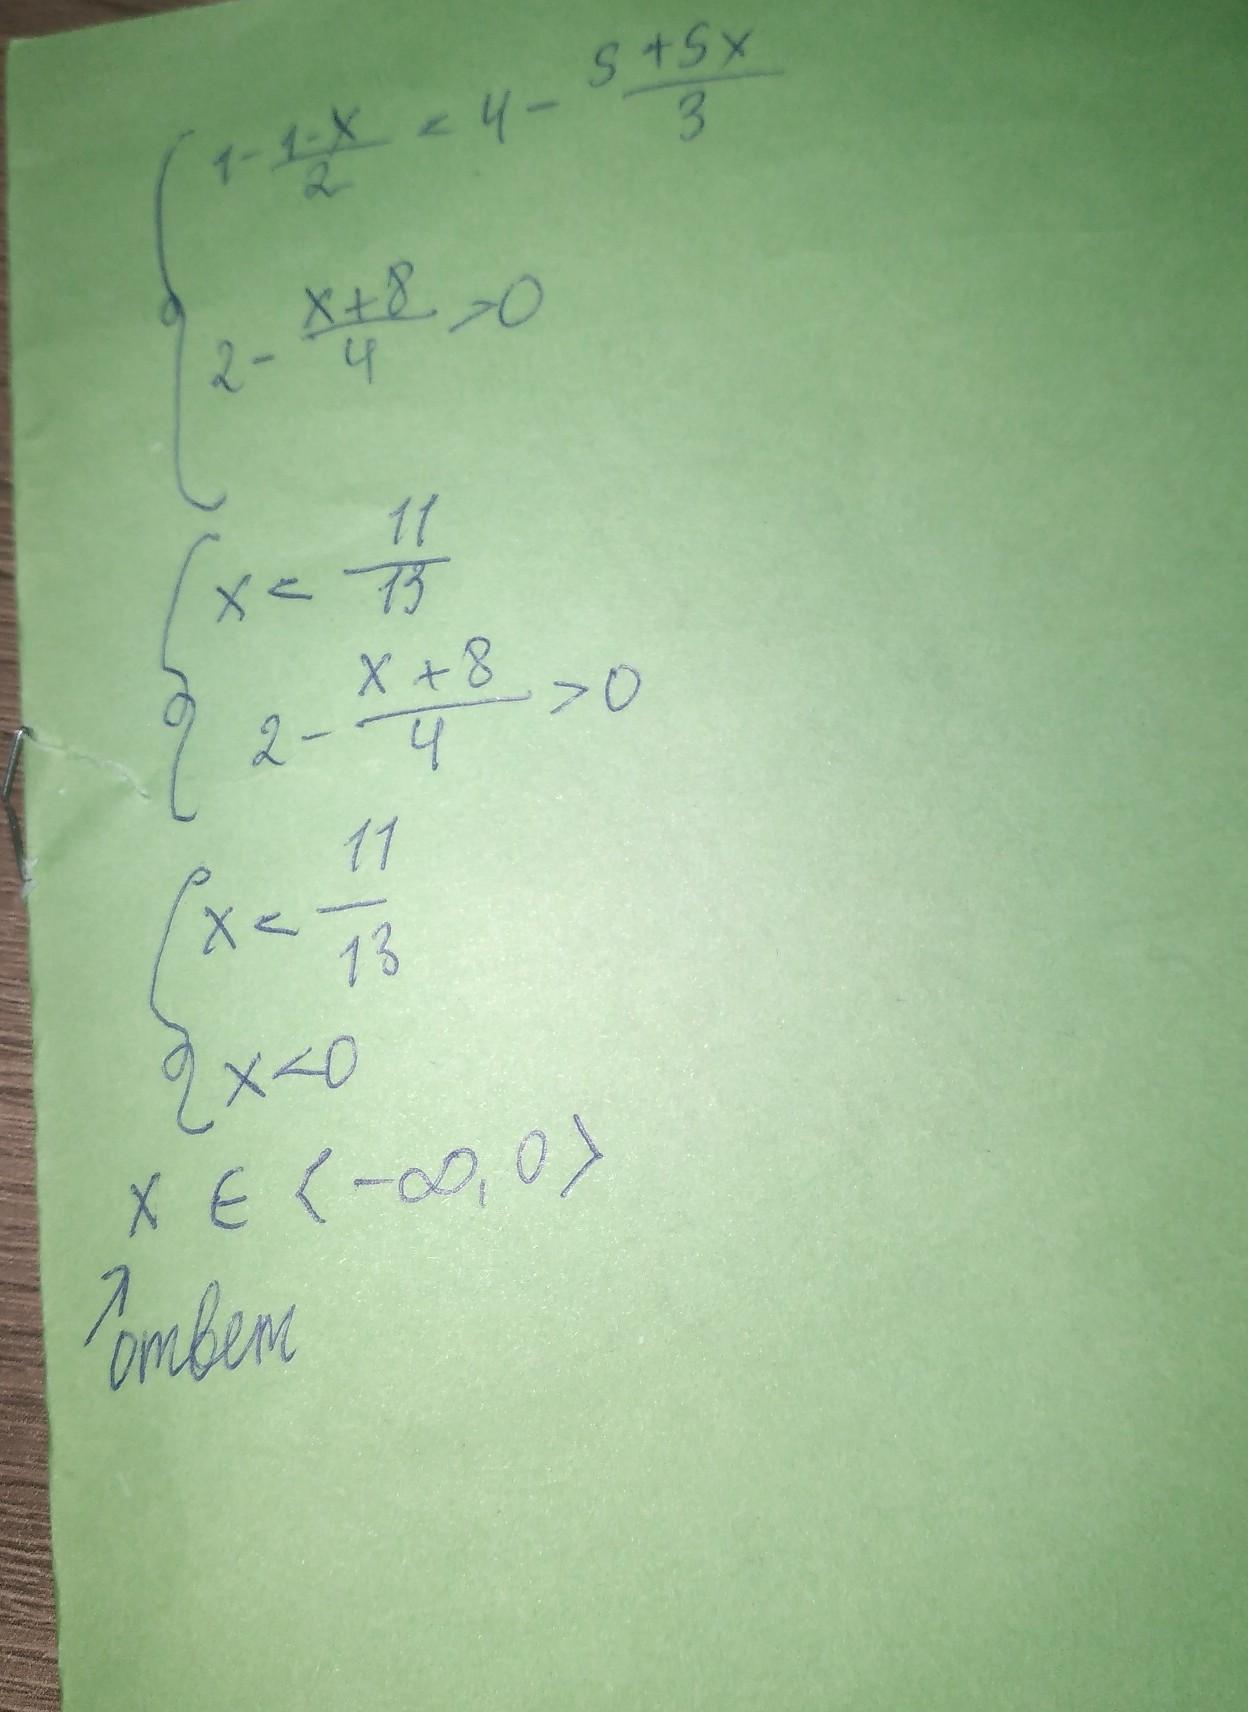 1 - \frac{1-x}{2} < 4 - \frac{5+5x}{3}
2 - \frac{x+8}{4} > 0
x < \frac{11}{13}
2 - \frac{x+8}{4} > 0
x < \frac{11}{13}
x < 0
x ∈ ⟨-∞, 0⟩
↗
ответ